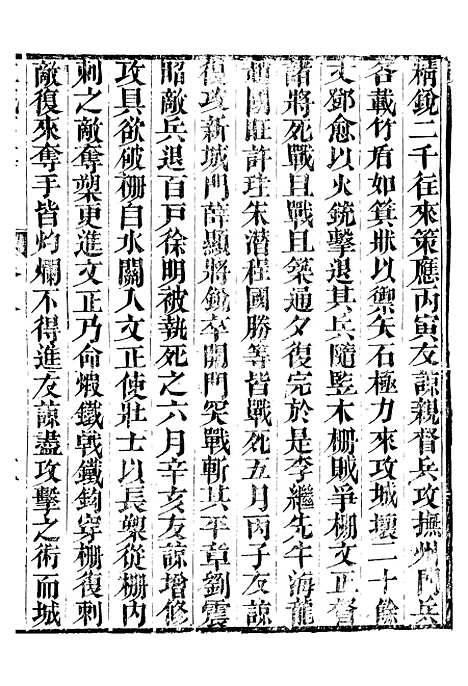 精銳二千往來策應丙寅友諒親督兵攻撫州門兵
各載竹盾如箕狀以禦矢石極力來攻城壞二十餘
丈鄧愈以火銃擊退其兵隨竪木柵賊爭柵文正督
諸將死戰且戰且築通夕復完於是李繼先牛海龍
趙國旺許珪朱潛程國勝等皆戰死五月丙子友諒
復攻新城門薛顯將銳卒開門突戰斬其平章劉震
昭敵兵退百戸徐明被執死之六月辛亥友諒增修
攻具欲破柵自水關入文正使壯士以長槊從柵内
刺之敵奪槊更進文正乃命煆鐵戟鐵鈎穿柵復刺
敵復來奪手皆灼爛不得進友諒盡攻擊之術而城